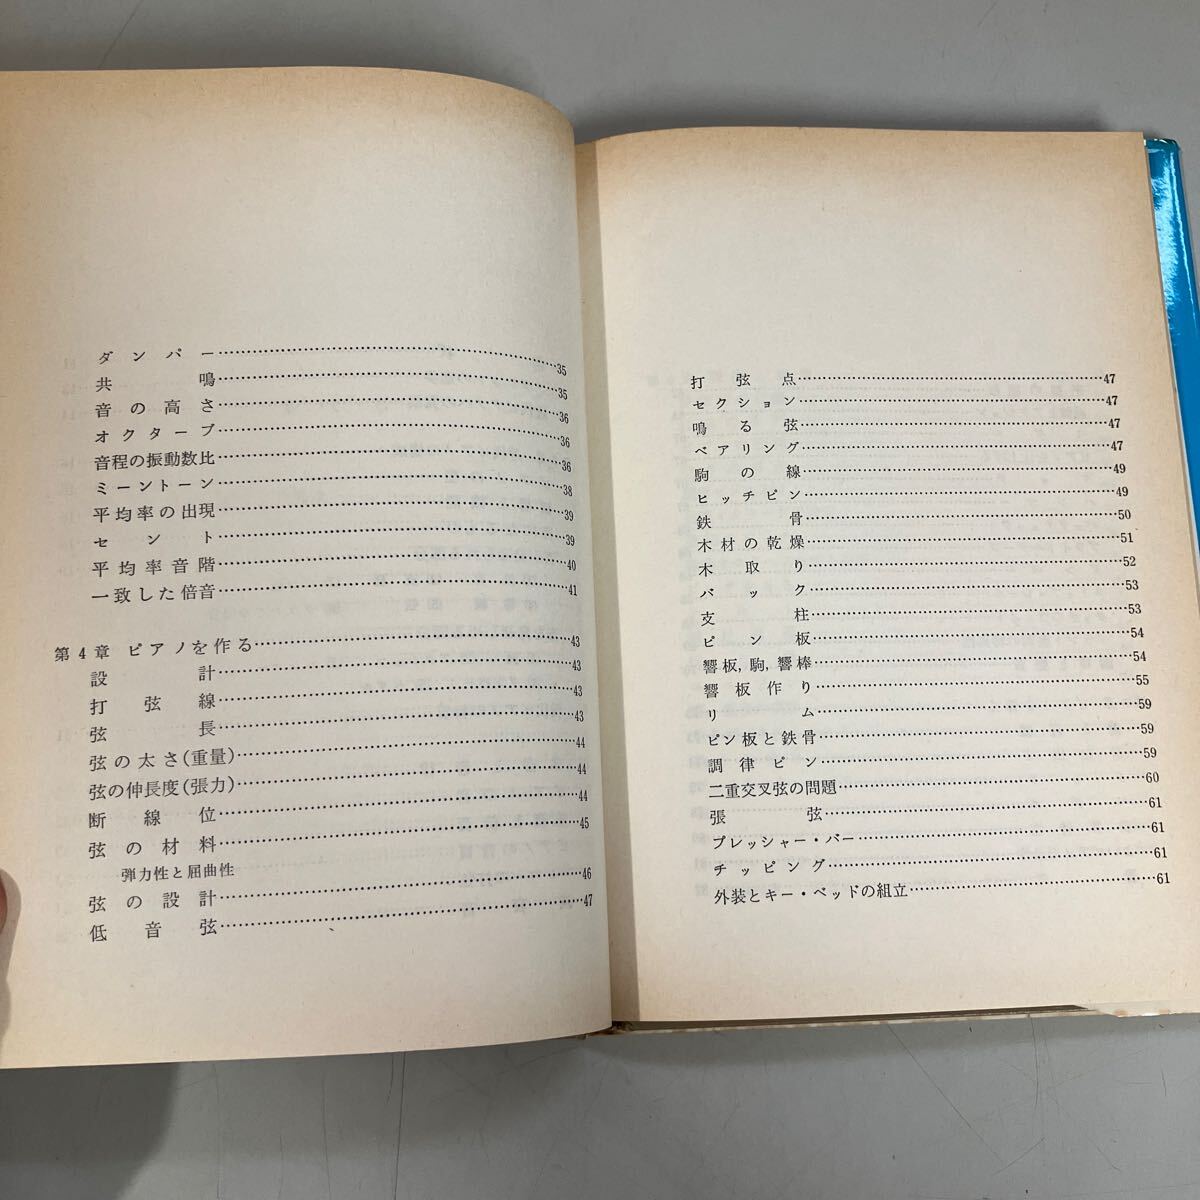 ダンパー……35
共鳴……35
音の高さ……36
オクターブ……36
音程の振動数比……36
ミーントーン……38
平均率の出現……39
セント……39
平均率音階……40
一致した倍音……41
第4章 ピアノを作る……43
設計……43
打弦線……43
弦長……43
弦の太さ(重量)……44
弦の伸長度(張力)……44
断線位……44
弦の材料……45
弾力性と屈曲性
弦の設計……46
低音弦……47
打弦点……47
セクション……47
鳴る弦……47
ベアリング……47
駒の線……49
ヒッチピン……49
鉄骨……50
木材の乾燥……51
木取り……52
バック……53
支柱……53
ピン板……54
響板,駒,響棒……54
響板作り……55
リム……59
ピン板と鉄骨……59
調律ピン……59
二重交叉弦の問題……60
張弦……61
プレッシャー・バー……61
チッピング……61
外装とキー・ベッドの組立……61